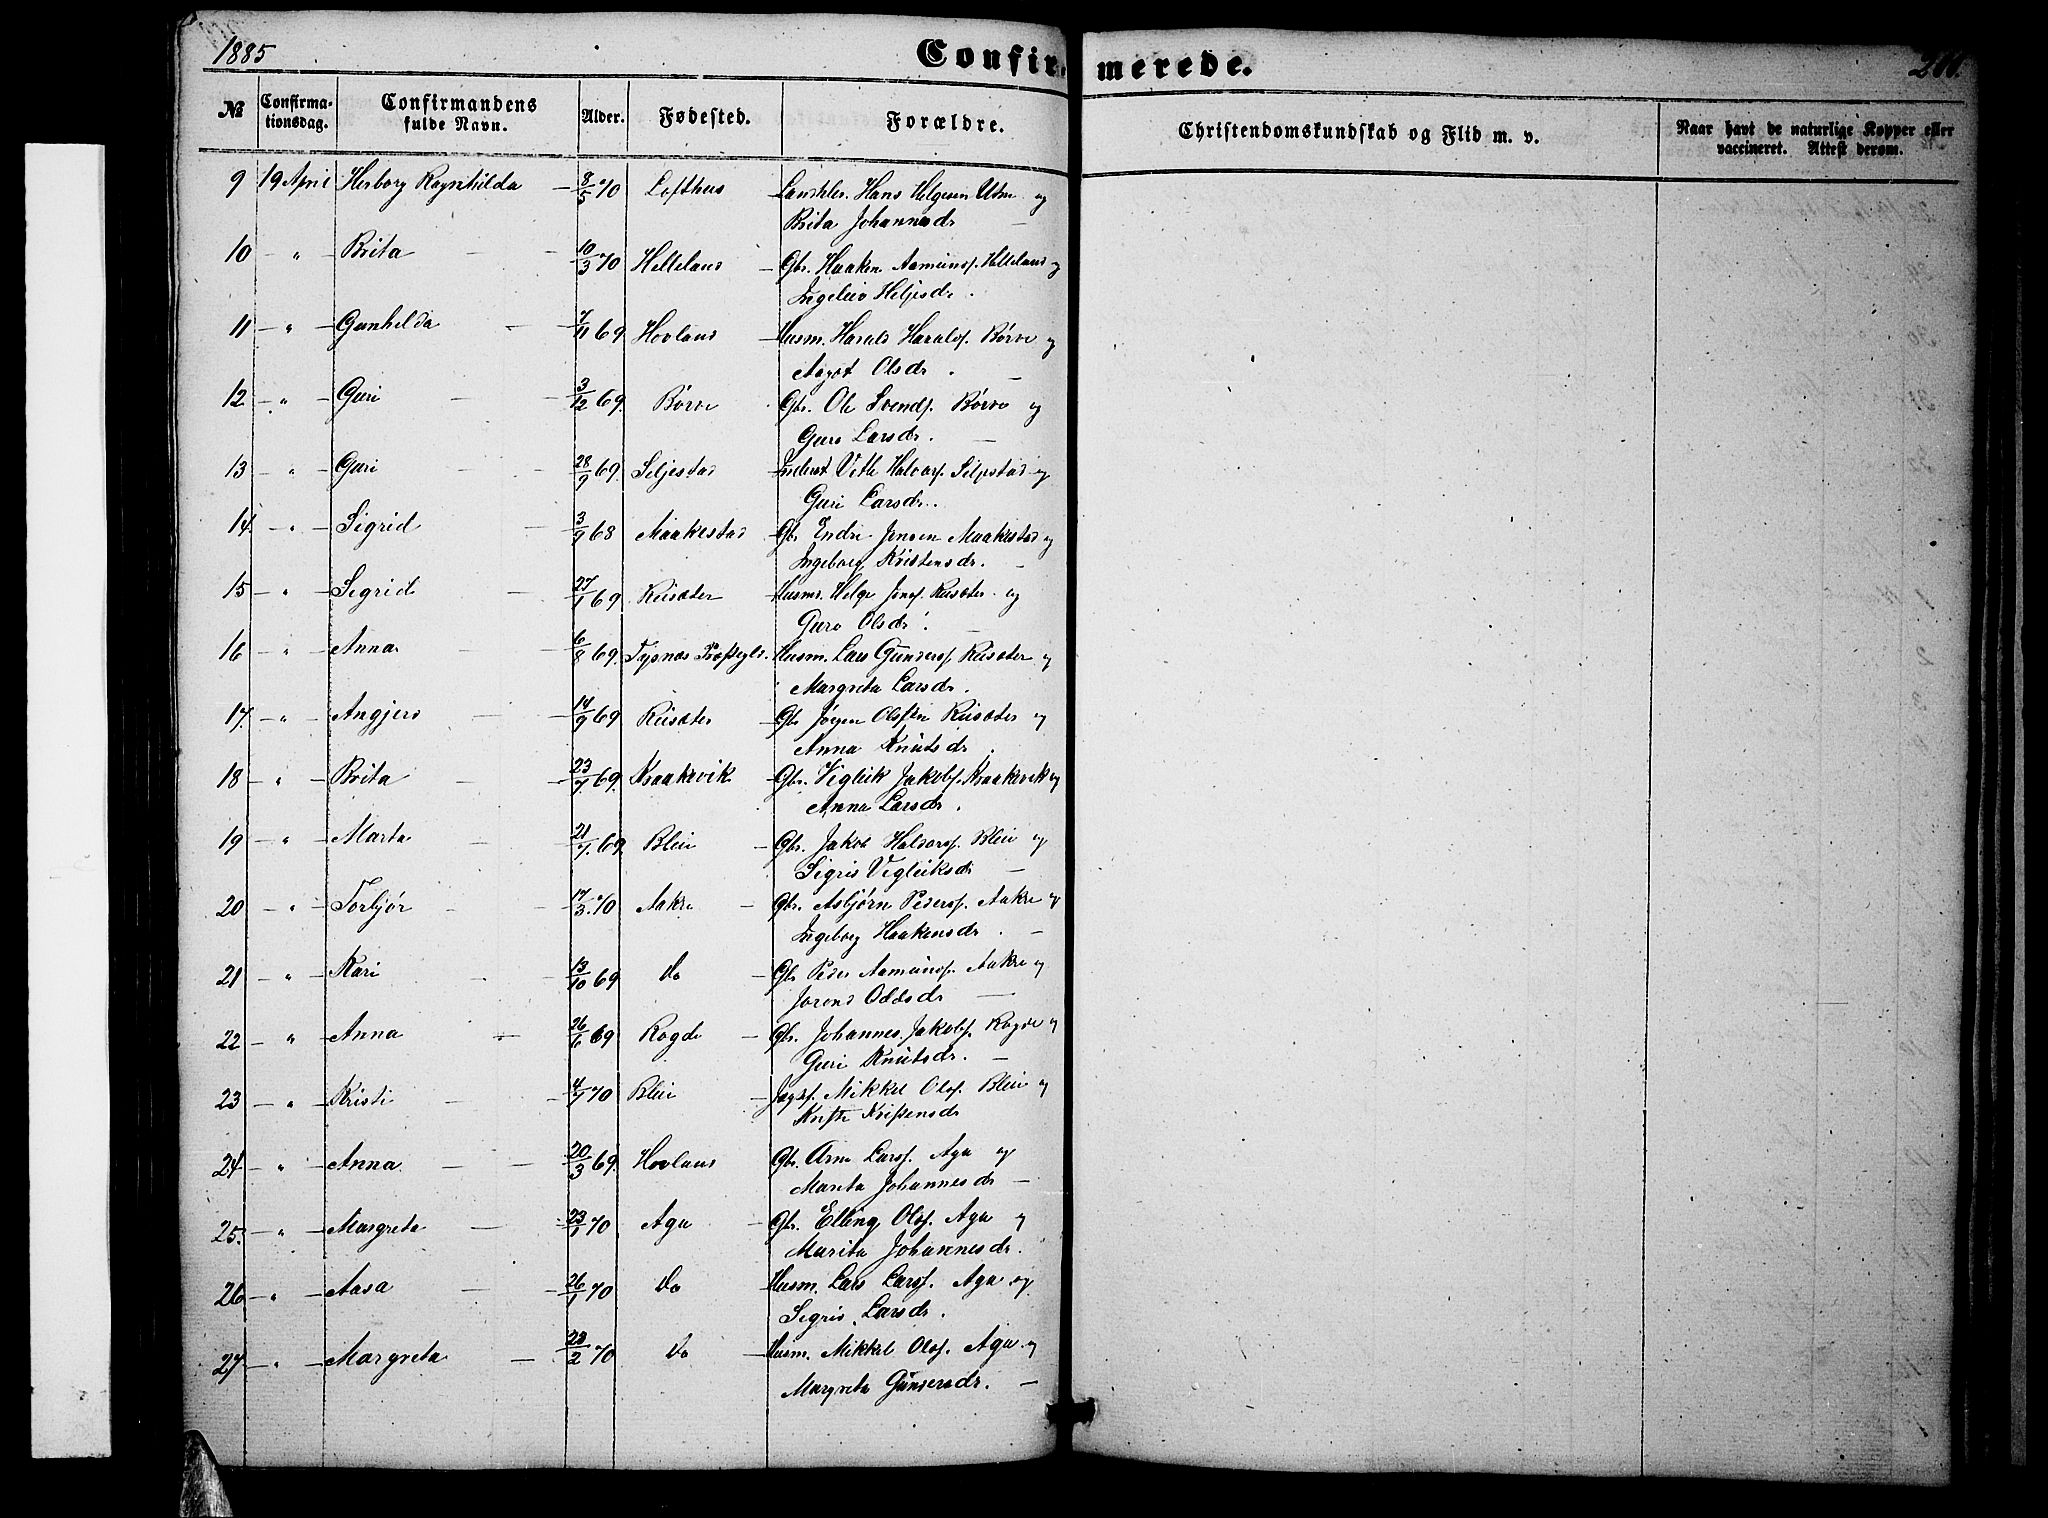 1885
Confirmerede.
№ Confirmationsdag. Confirmandens fulde Navn. Alder. Fødested. Forældre. Christendomskundskab og Flid m. v. Naar havt de naturlige Kopper eller vaccineret. Attest derom.
9 19 April Herborg Ragnhilda — 8/5 70 Lofthus Hans Helgesen Utne og
Brita Johannesdr —
10 — " — Brita — 10/3 70 Helleland — Gbr. Haaken Aamunds. Helleland og
Ingeleiv Heljesdr.
11 — " — Gunhilda — 7/11 69. Hovland — Husm. Harald Haralds. Børve og
Aagot Olsdr. —
12 — " — Guri — 3/12 69. Børve Gbr. Ole Svends. Børve og
Guro Larsdr. —
13 — " — Guri — 28/9 69. Seljestad — Vetle Halvors. Seljestad og
Guri Larsdr.
14. — " — Sigrid — 3/9 68 Maakestad — Gbr. Endre Jonsen Maakestad og
Ingeborg Kristensdr. —
15 — " — Sigrid — 27/1 69 Rusæter — Husm. Helge Jons. Rusæter og
Guro Olsdr. —
16 — " — Anna — 6/8 69. Tysnæs Præstegld. Husm. Lars Gunders. Rusæter og
Margreta Larsdr.
17. — " — Angjerd — 14/9 69 Rusæter — Gbr Jørgen Olsen Rusæter og
Anna Knutsdr.
18 — " — Brita — 23/7 69. Kraakevik — Gbr. Vigleik Jakobs. Kraakevik og
Anna Larsdr.
19 — " — Marta — 21/7 69. Bleie — Gbr. Jakob Halvors. Bleie og
Sigrid Vigleiksdr —
20 — " — Torbjør — 17/3 70 Aakre — Gbr. Asbjørn Peders. Aakre og
Ingeborg Haakensdr. —
21 — " — Kari — 13/10 69 Do — Gbr Peder Aamunds. Aakre og
Jorend Oddsdr —
22 — " — Anna — 26/6 69 Rogde — Gbr. Johannes Jakobs. Rogde og
Guri Knutsdr. —
23 — " — Kristi — 4/1 70 Bleie — Mikkel Ols. Bleie og
Kristensdr
24 — " — Anna — — 20/3 69. Hovland Gbr. Arne Lars. Aga og
Marita Johannesdr —
25. — " — Margreta — 23/1 70 Aga — Gbr. Elling Ols. Aga og
Marita Johannesdr.
26 — " — Aasa — 26/1 70 Do Husm. Lars Lars. Aga og
Sigrid Larsdr.
27 — " — Margreta — 2/2 70 Do — Husm. Mikkel Ols. Aga og
Margreta Gundersdr. —